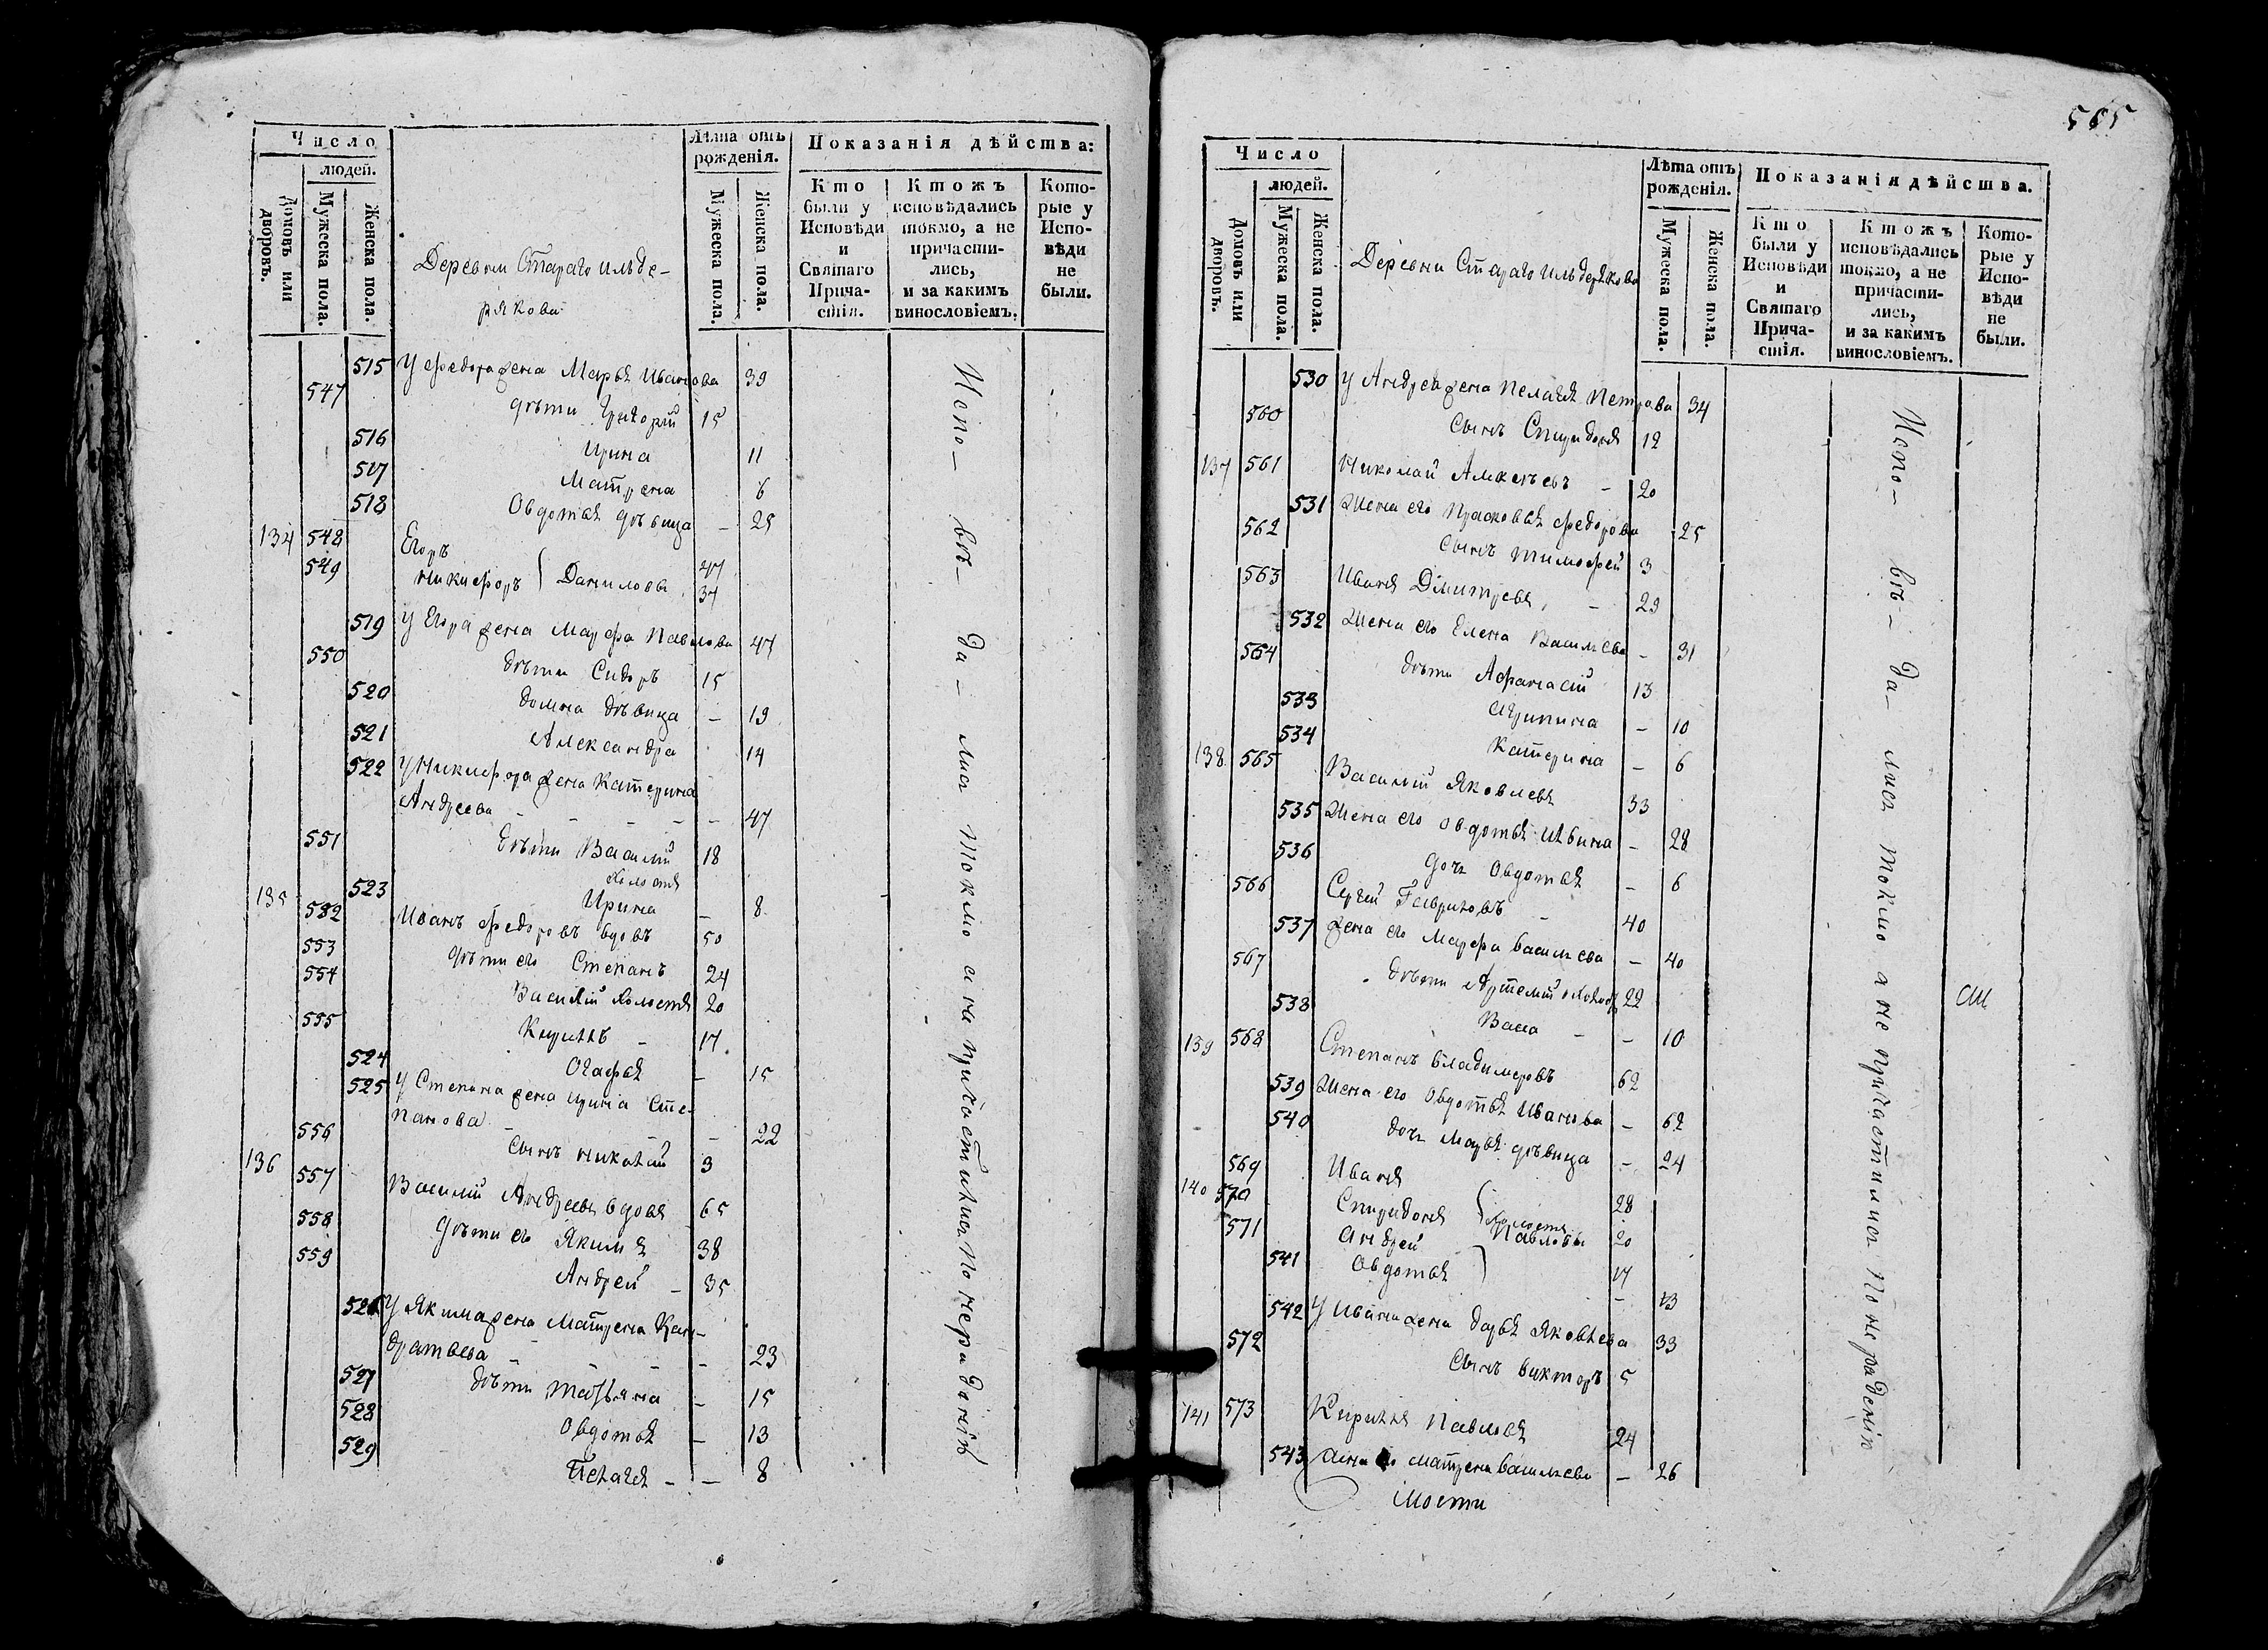 Число
людей.
Домовъ или дворовъ.
Мужеска пола.
Женска пола.
Деревни Стараго ильде-
рякова
Лѣта отъ рожденія.
Мужеска пола.
Женска пола.
Показанія дѣйства:
Кто были у Исповѣди и Святаго Прича-стія.
Ктожъ исповѣдались токмо, а не причасти-лись, и за какимъ винословіемъ.
Кото-рые у Испо-вѣди не были.
515 У федора жена Марья Иванова 39
547 дѣти Григорий 15
516 Ирина 11
517 Матрена 6
518 Овдотья дѣвица – 25
134 548 Егоръ 47
549 Никифоръ } Даниловы 37
519 У Егора жена Марфа Павлова 47
550 дѣти Сидоръ 15
520 Домна дѣвица – 19
521 Александра 14
522 У Никифора жена Катерина
Андреева – – – – – 47
551 дѣти Василий 18
холостъ
523 Ирина – 8
135 552 Иванъ федоровъ вдовъ 50
553 дѣти его Степанъ 24
554 Василий холостъ 20
555 Кирилъ – 17
524 Огафья – 15
525 У Степана жена Ирина Сте-
панова – – – 22
556 сынъ николай 3
136 557 Василий Андреевъ вдовъ 65
558 дѣти его Якимъ 38
559 Андрей – 35
526 У Якима жена Матрена Кон-
дратьева – – – – 23
527 дѣти Татьяна – 15
528 Овдотья – 13
529 Пелагея – – 8
Испо- вѣ- да- лись токмо а не причастились По нерадению
565
Число
людей.
Домовъ или дворовъ.
Мужеска пола.
Женска пола.
Деревни Стараго ильдерякова
Лѣта отъ рожденія.
Мужеска пола.
Женска пола.
Показанія дѣйства.
Кто были у Исповѣди и Святаго Прича-стія.
Ктожъ исповѣдались токмо, а не причасти-лись, и за какимъ винословіемъ.
Кото-рые у Испо-вѣди не были.
530 У Андрея жена Пелагея Петрова 34
560 сынъ Спиридонъ 12
137 561 Николай Алексѣевъ – 20
531 Жена его Прасковья федорова 25
562 сынъ тимофей 3
563 Иванъ Дмитревъ – 29
532 Жена его Елена Васильева – 31
564 дѣти Афанасий 13
533 Агрипина – 10
534 Катерина – 6
138 565 Василий Яковлевъ 33
535 Жена его овдотья – 28
536 дочь Овдотья – 6
566 Сергей Гавриловъ – 40
537 жена его Марфа васильева – 40
567 дѣти Артемий холостъ 22
538 Васа – – 10
139 568 Степанъ владимеровъ 62
539 Жена его Овдотья Иванова – 62
540 дочь Марья дѣвица – 24
569 Иванъ 28
140 570 Спиридонъ { холосты 20
571 Андрей Павловы 17
541 Овдотья } – 13
542 У Ивана жена дарья Яковлева 33
572 сынъ викторъ 5
141 573 Кирилъ Павловъ 24
543 жена его матрена васильева – 26
Испо- вѣ- да- лись токмо а не причастились По нерадению